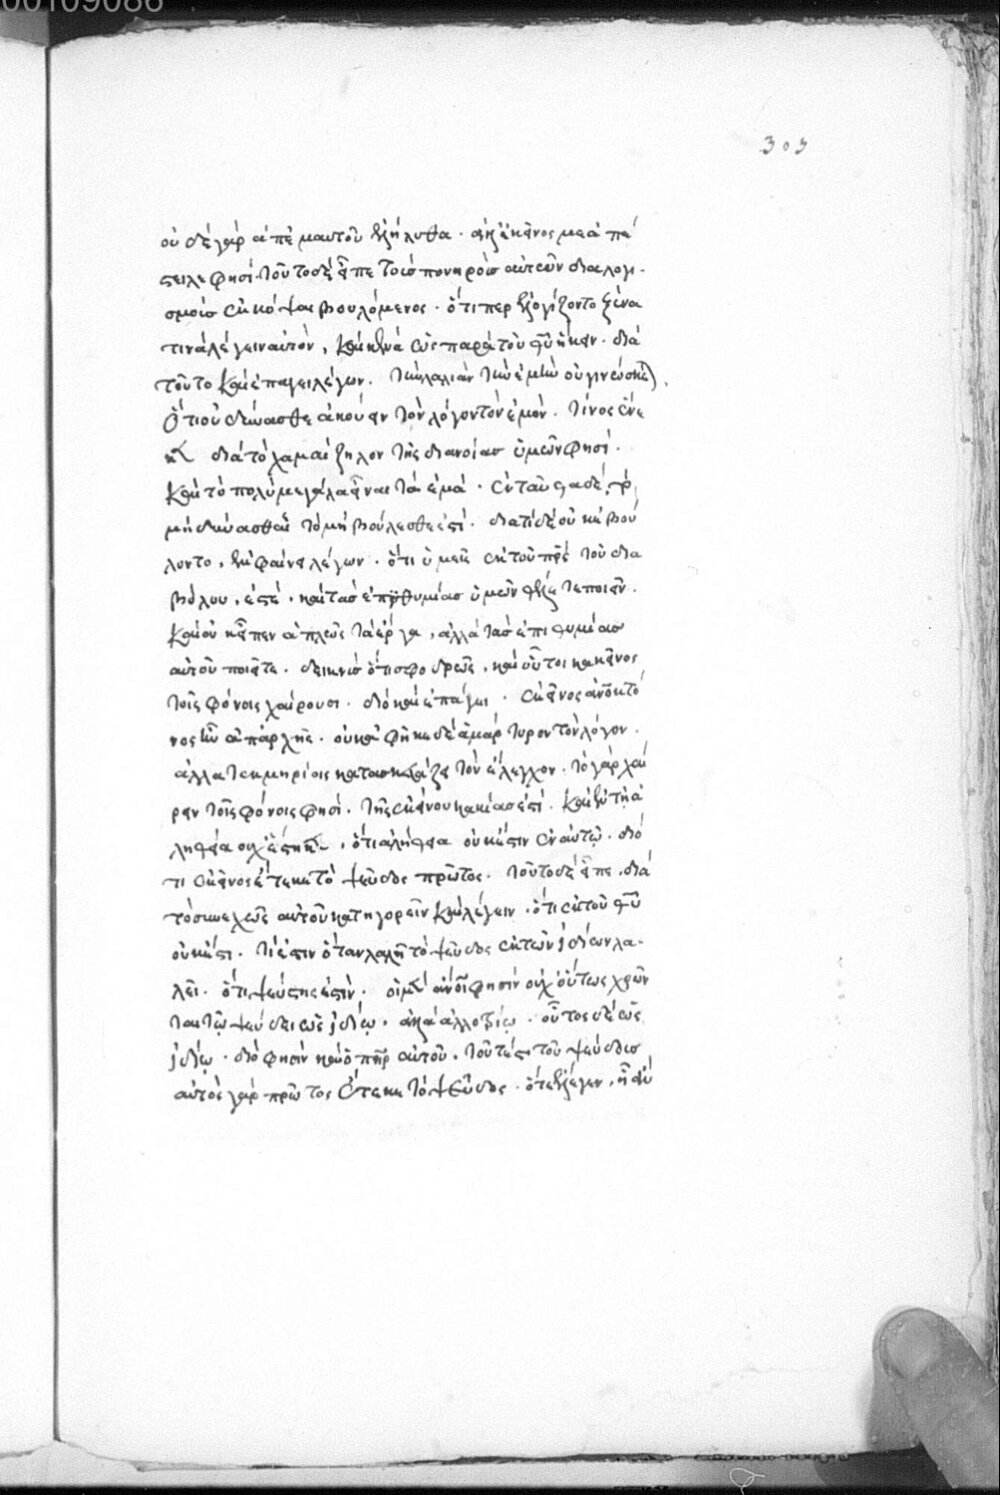 00109086
303
οὐδὲ γὰρ ἀπ' ἐμαυτοῦ ἐξήλυθα· ἀλλ' ἐκεῖνος με ἀπέ
στειλε φησί. τοῦτο δὲ εἶπε τοῖς πονηροῖς αὐτῶν διαλογι-
σμοῖς ἐκκόψαι βουλόμενος· ὅτιπερ ἐλογίζοντο ξένα
τινὰ λέγειν αὐτὸν, καὶ οὐχ ὡς παρὰ τοῦ θῦ ἧκεν· διὰ
τοῦτο καὶ ἐπάγει λέγων. τὴν λαλιὰν τὴν ἐμὴν οὐ γινώσκετε,
ὅτι οὐ δύνασθε ἀκούειν τὸν λόγον τὸν ἐμόν. τίνος ἕνε
κα διὰ τὸ χαμαίζηλον τῆς διανοίας ὑμῶν φησί.
καὶ τὸ πολὺ μεγάλα εἶναι τὰ ἐμά· ἐνταῦθα δὲ, τὸ
μὴ δύνασθαι τὸ μὴ βούλεσθε ἐστί. διατί δὲ οὐκ ἐβού
λοντο, ἐκφαίνει λέγων· ὅτι ὑμεῖς ἐκ τοῦ πρς τοῦ δια
βόλου, ἐστέ, καὶ τὰς ἐπιθυμίας ὑμῶν θέλετε ποιεῖν.
καὶ οὐκ εἶπεν ἁπλῶς τὰ ἔργα, ἀλλὰ τὰς ἐπιθυμίας
αὐτοῦ ποιεῖτε. δεικνὺς ὅτι σφοδρῶς, καὶ οὗτοι κἀκεῖνος
τοῖς φόνοις χαίρουσι. διὸ καὶ ἐπάγει· ἐκεῖνος ἀνοκτό
νος ἦν ἀπ' ἀρχῆς. οὐκ ἀφῆκε δὲ ἀμάρτυρον τὸν λόγον.
ἀλλὰ τεκμηρίοις κατασκευάζει τὸν ἔλεγχον. τὸ γὰρ χαί
ρειν τοῖς φόνοις φησί. τῆς ἐκείνου κακίας ἐστί. καὶ ἐν τῇ ἀ
ληθεία οὐχ ἕστηκεν, ὅτι ἀλήθεια οὐκ ἔστιν ἐν αὐτῷ. διό
τι ἐκεῖνος ἔτεκε τὸ ψεῦδος πρῶτος. τοῦτο δὲ εἶπε, διὰ
τὸ συνεχῶς αὐτοῦ κατηγορεῖν καὶ λέγειν, ὅτι ἐκ τοῦ θῦ
οὐκ ἔστι. τί ἐστιν ὅταν λαλῆ τὸ ψεῦδος ἐκ τῶν ἰδίων λα-
λεῖ. ὅτι ψεύστης ἐστὶν. οἱ μὲν ἀνοι φησὶν οὐχ οὕτως χρῶν
ται τῷ ψεύδει ὡς ἰδίῳ, ἀλλὰ ἀλλοτρίῳ. οὗτος δὲ ὡς
ἰδίῳ. διό φησὶν καὶ ὁ πηρ αὐτοῦ. τοῦτέστι τοῦ ψεύδους
αὐτὸς γὰρ πρῶτος ἔτεκε τὸ ψεῦδος. ὅτε ἔλεγεν, ᾗ ἂν